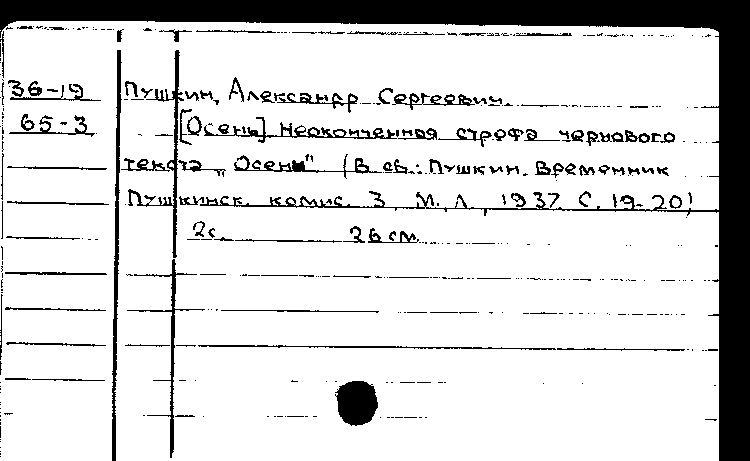 36-19 Пушкин, Александр Сергеевич.
65-3 [Осень] Неоконченная строфа чернового
текста „Осень" (В сб.: Пушкин. Временник
Пушкинск. комис. 3, М. Л., 1937 С. 19-20)
2с. 26 см.